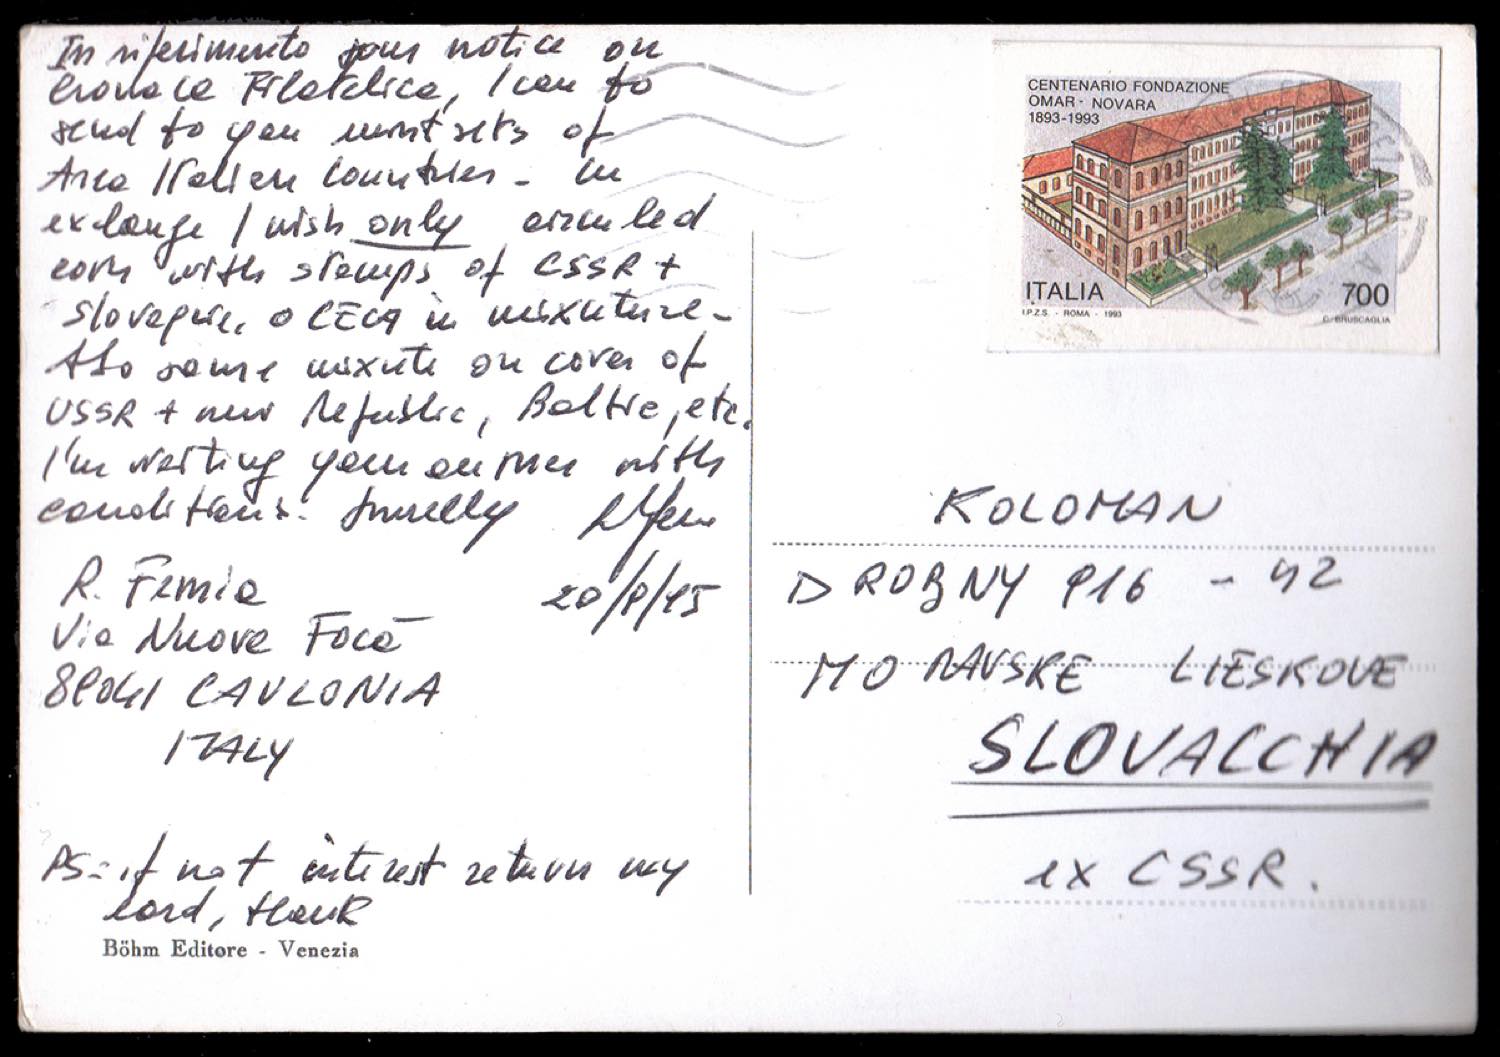 In riferimento your notice on
Cronaca Filatelica, I can to
send to you mint sets of
Area Italien Countries - In
exchange I wish only circuled
with stamps of CSSR +
o CECA in mixuture -
Also some mixute on cover of
USSR + new Republic, Baltic, etc.
I'm waiting your answer with
conditions.
R. Femia 20/8/95
Via Nuova Focà
89041 CAULONIA
ITALY
PS = if not interest return my
card, thank
Böhm Editore - Venezia
CENTENARIO FONDAZIONE
OMAR - NOVARA
1893-1993
ITALIA 700
I.P.Z.S. - ROMA - 1993 C. BRUSCAGLIA
KOLOMAN
DROBNY 916 - 42
MORAVSKE LIESKOVE
SLOVACCHIA
ex CSSR.